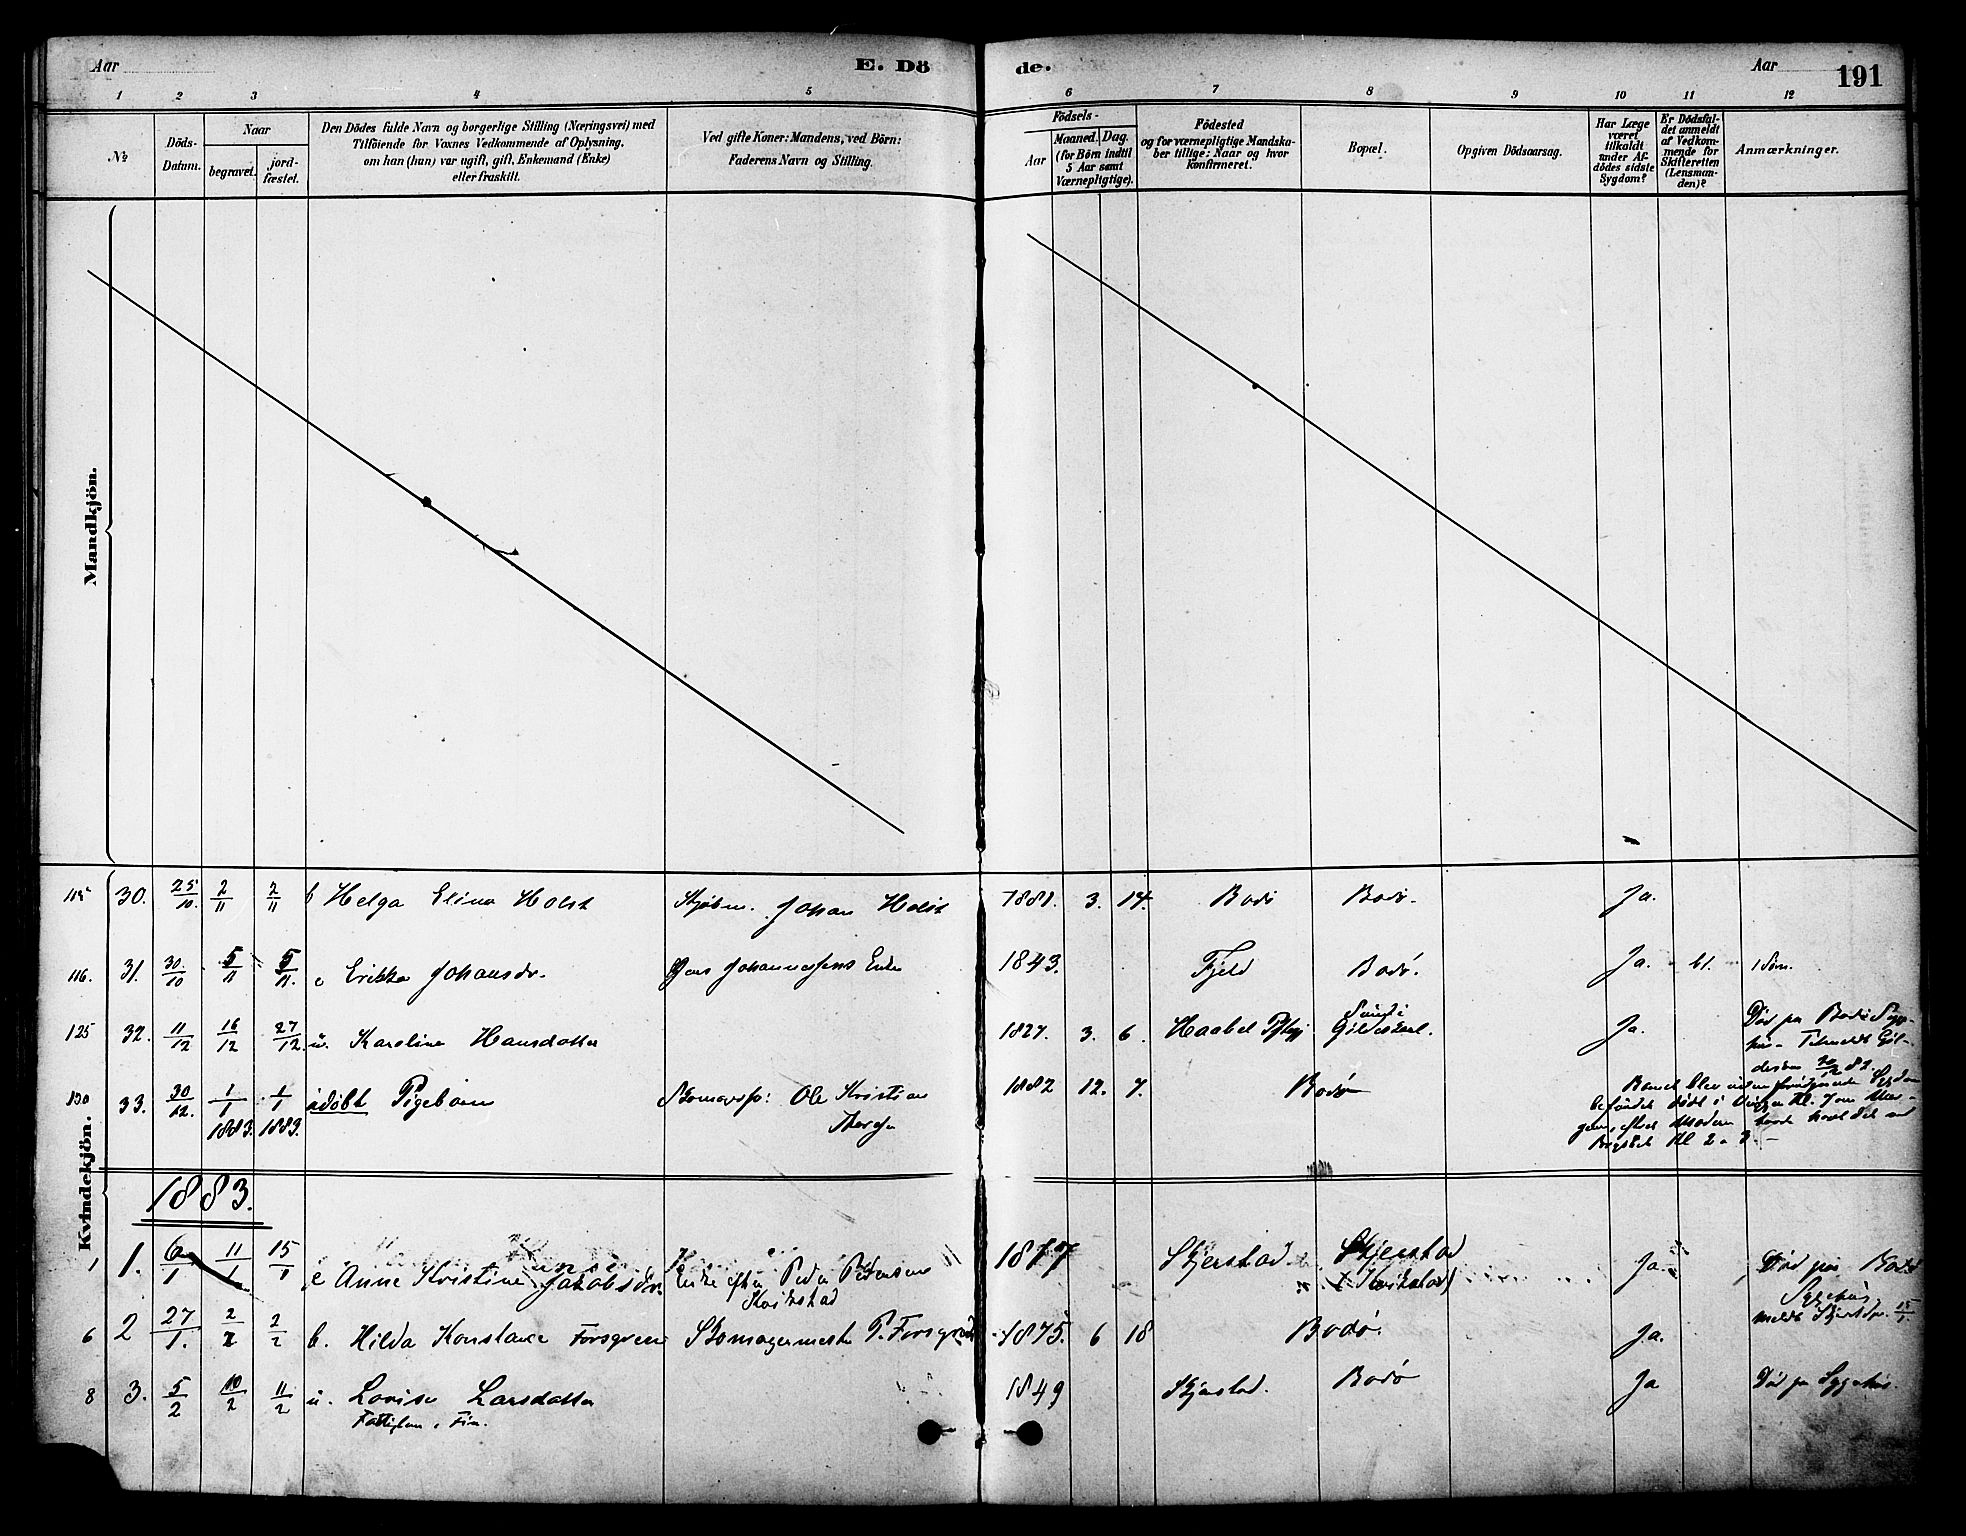 Aar
E. Dö
de.
Aar
191
1 2 3 4 5 6 7 8 9 10 11 12
№
Döds-
Datum.
Naar
begravet.
jord-
fæstet.
Den Dödes fulde Navn og borgerlige Stilling (Næringsvei) med
Tilföiende for Voxnes Vedkommende af Oplysning,
om han (hun) var ugift, gift, Enkemand (Enke)
eller fraskilt.
Ved gifte Koner: Mandens, ved Börn:
Faderens Navn og Stilling.
Födsels-
Aar
Maaned. Dag.
(for Börn indtil
5 Aar samt
Værnepligtige).
Födested
og for værnepligtige Mandska-
ber tillige: Naar og hvor
konfirmeret.
Bopæl.
Opgiven Dödsaarsag.
Har Læge
været
tilkaldt
under Af-
dödes sidste
Sygdom?
Er Dödsfal-
det anmeldt
af Vedkom-
mende for
Skifteretten
(Lensman-
den)?
Anmærkninger.
Mandkjön.
Kvindekjön.
115 30. 25/10. 2/11 2/11 b Helga Elina Holst Johan Holst 1881. 3. 14. Bodö Bodö. Ja.
116. 31. 30/10 5/11 5/11. e Erikka Johansdr. Jens Johannessens Enke 1843. Fjeld Bodö. Ja.
125 32. 11/12 16/12 27/12. u. Karoline Hansdatter 1827. 3. 6. Gildeskaal. Ja. Död paa Bodö Syge-
130 33. 30/12. 1/1 1883. 1/1 1883. udöbt Pigebarn Ole Kristian 1882 12. 7. Bodö
Barnet blev uden Sygdom
befundet dödt i Vuggen Kl. 7 om Mor-
gen, efter Moderen havde
Brystet Kl. 2 a 3.
1883.
1 1. 6/1 11/1 15/1 e Anne Kristine Jakobsdr. Enke efter Peder Pedersen
Kvikstad
1817 Skjerstad Skjerstad
(Kvikstad)
Ja. Död paa Bodö
Sygehus,
meldt Skjerstad 15/1.
6 2 27/1. 2/2 2/2 b. Hilda Konstanse Forsgren Skomagermester P. Forsgren 1875. 6 18 Bodö. Ja.
8 3. 5/2 10/2 11/2 u. Lovise Larsdatter 1849 Skjerstad. Bodö Ja Död paa Sygehus.
Fattiglem, Fin.